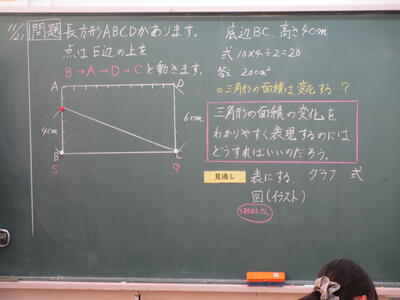 11/21
問題 長方形ABCDがあります。
点はE辺の上を
B→A→D→Cと動きます。
A
D
4cm
6cm
B
C
S
底辺BC、高さ4cm
式 10×4÷2=20
答 20cm²
○三角形の面積は変化する…?
三角形の面積の変化を
わかりやすく表現するのには
どうすればいいのだろう。
見通し 表にする グラフ 式
図(イラスト)